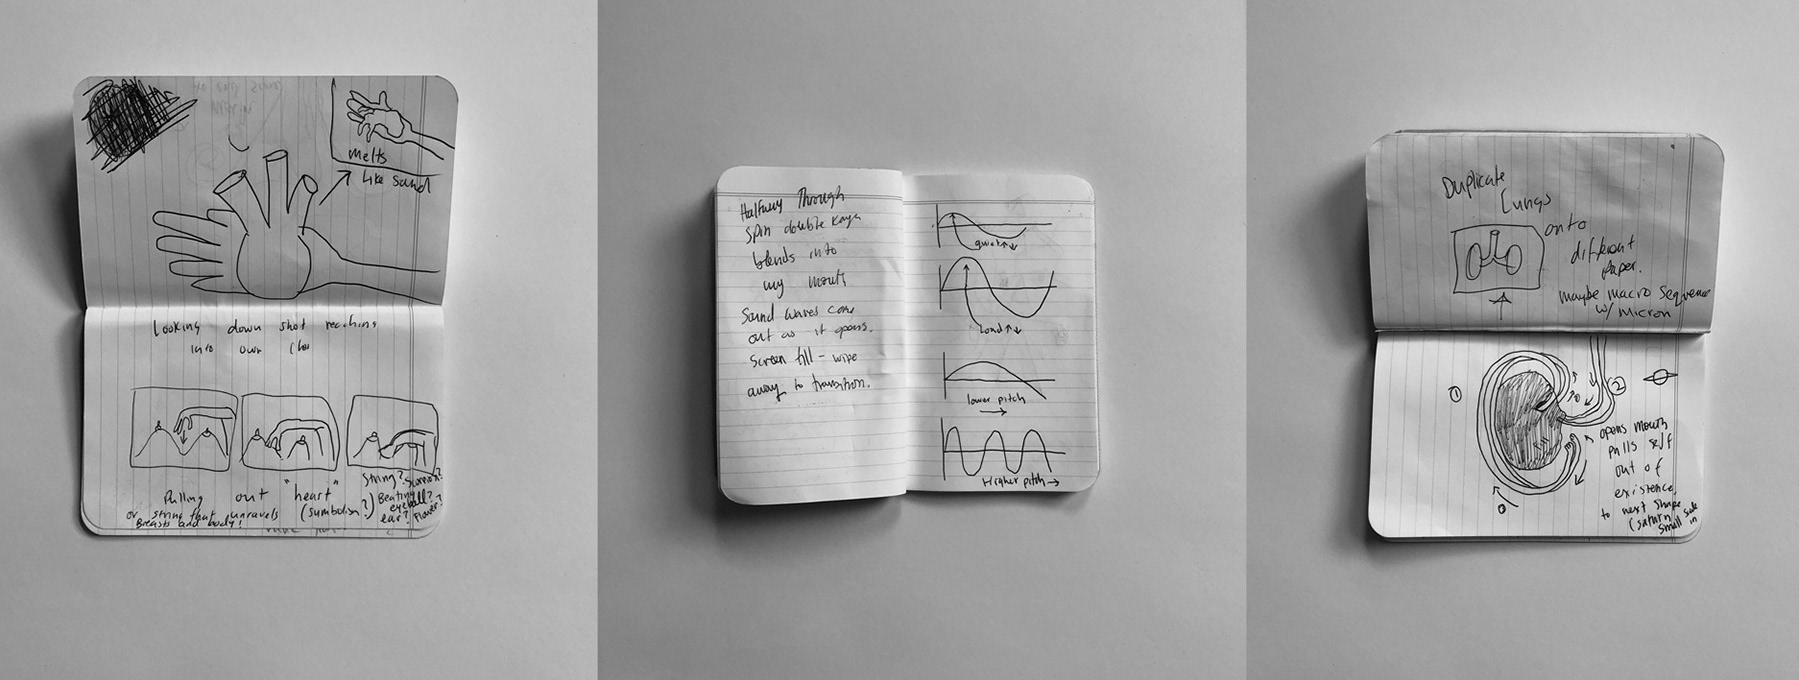 Melts
Like Sand
Looking down shot reaching
into own
Pulling out "heart"
(sumbolism?)
or string that unravels
Breasts and body!
String?
Beating
eyeball?
ear? Flower?
Halfway Through
Spin double Kaya
blends into
my mouth
Sound waves come
out as it opens.
Screen fill - wipe
away to transition.
quiet
Loud
lower pitch
Higher pitch
Duplicate
Lungs
onto
different
Paper.
maybe macro Sequence
w/ Micron
1
2
opens mouth
pulls self
out of
existence,
to next shape
(saturn
small side
in